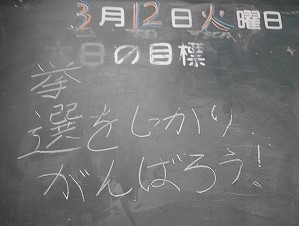 3月12日火曜日
本日の目標
挙
選をしっかり
がんばろう!